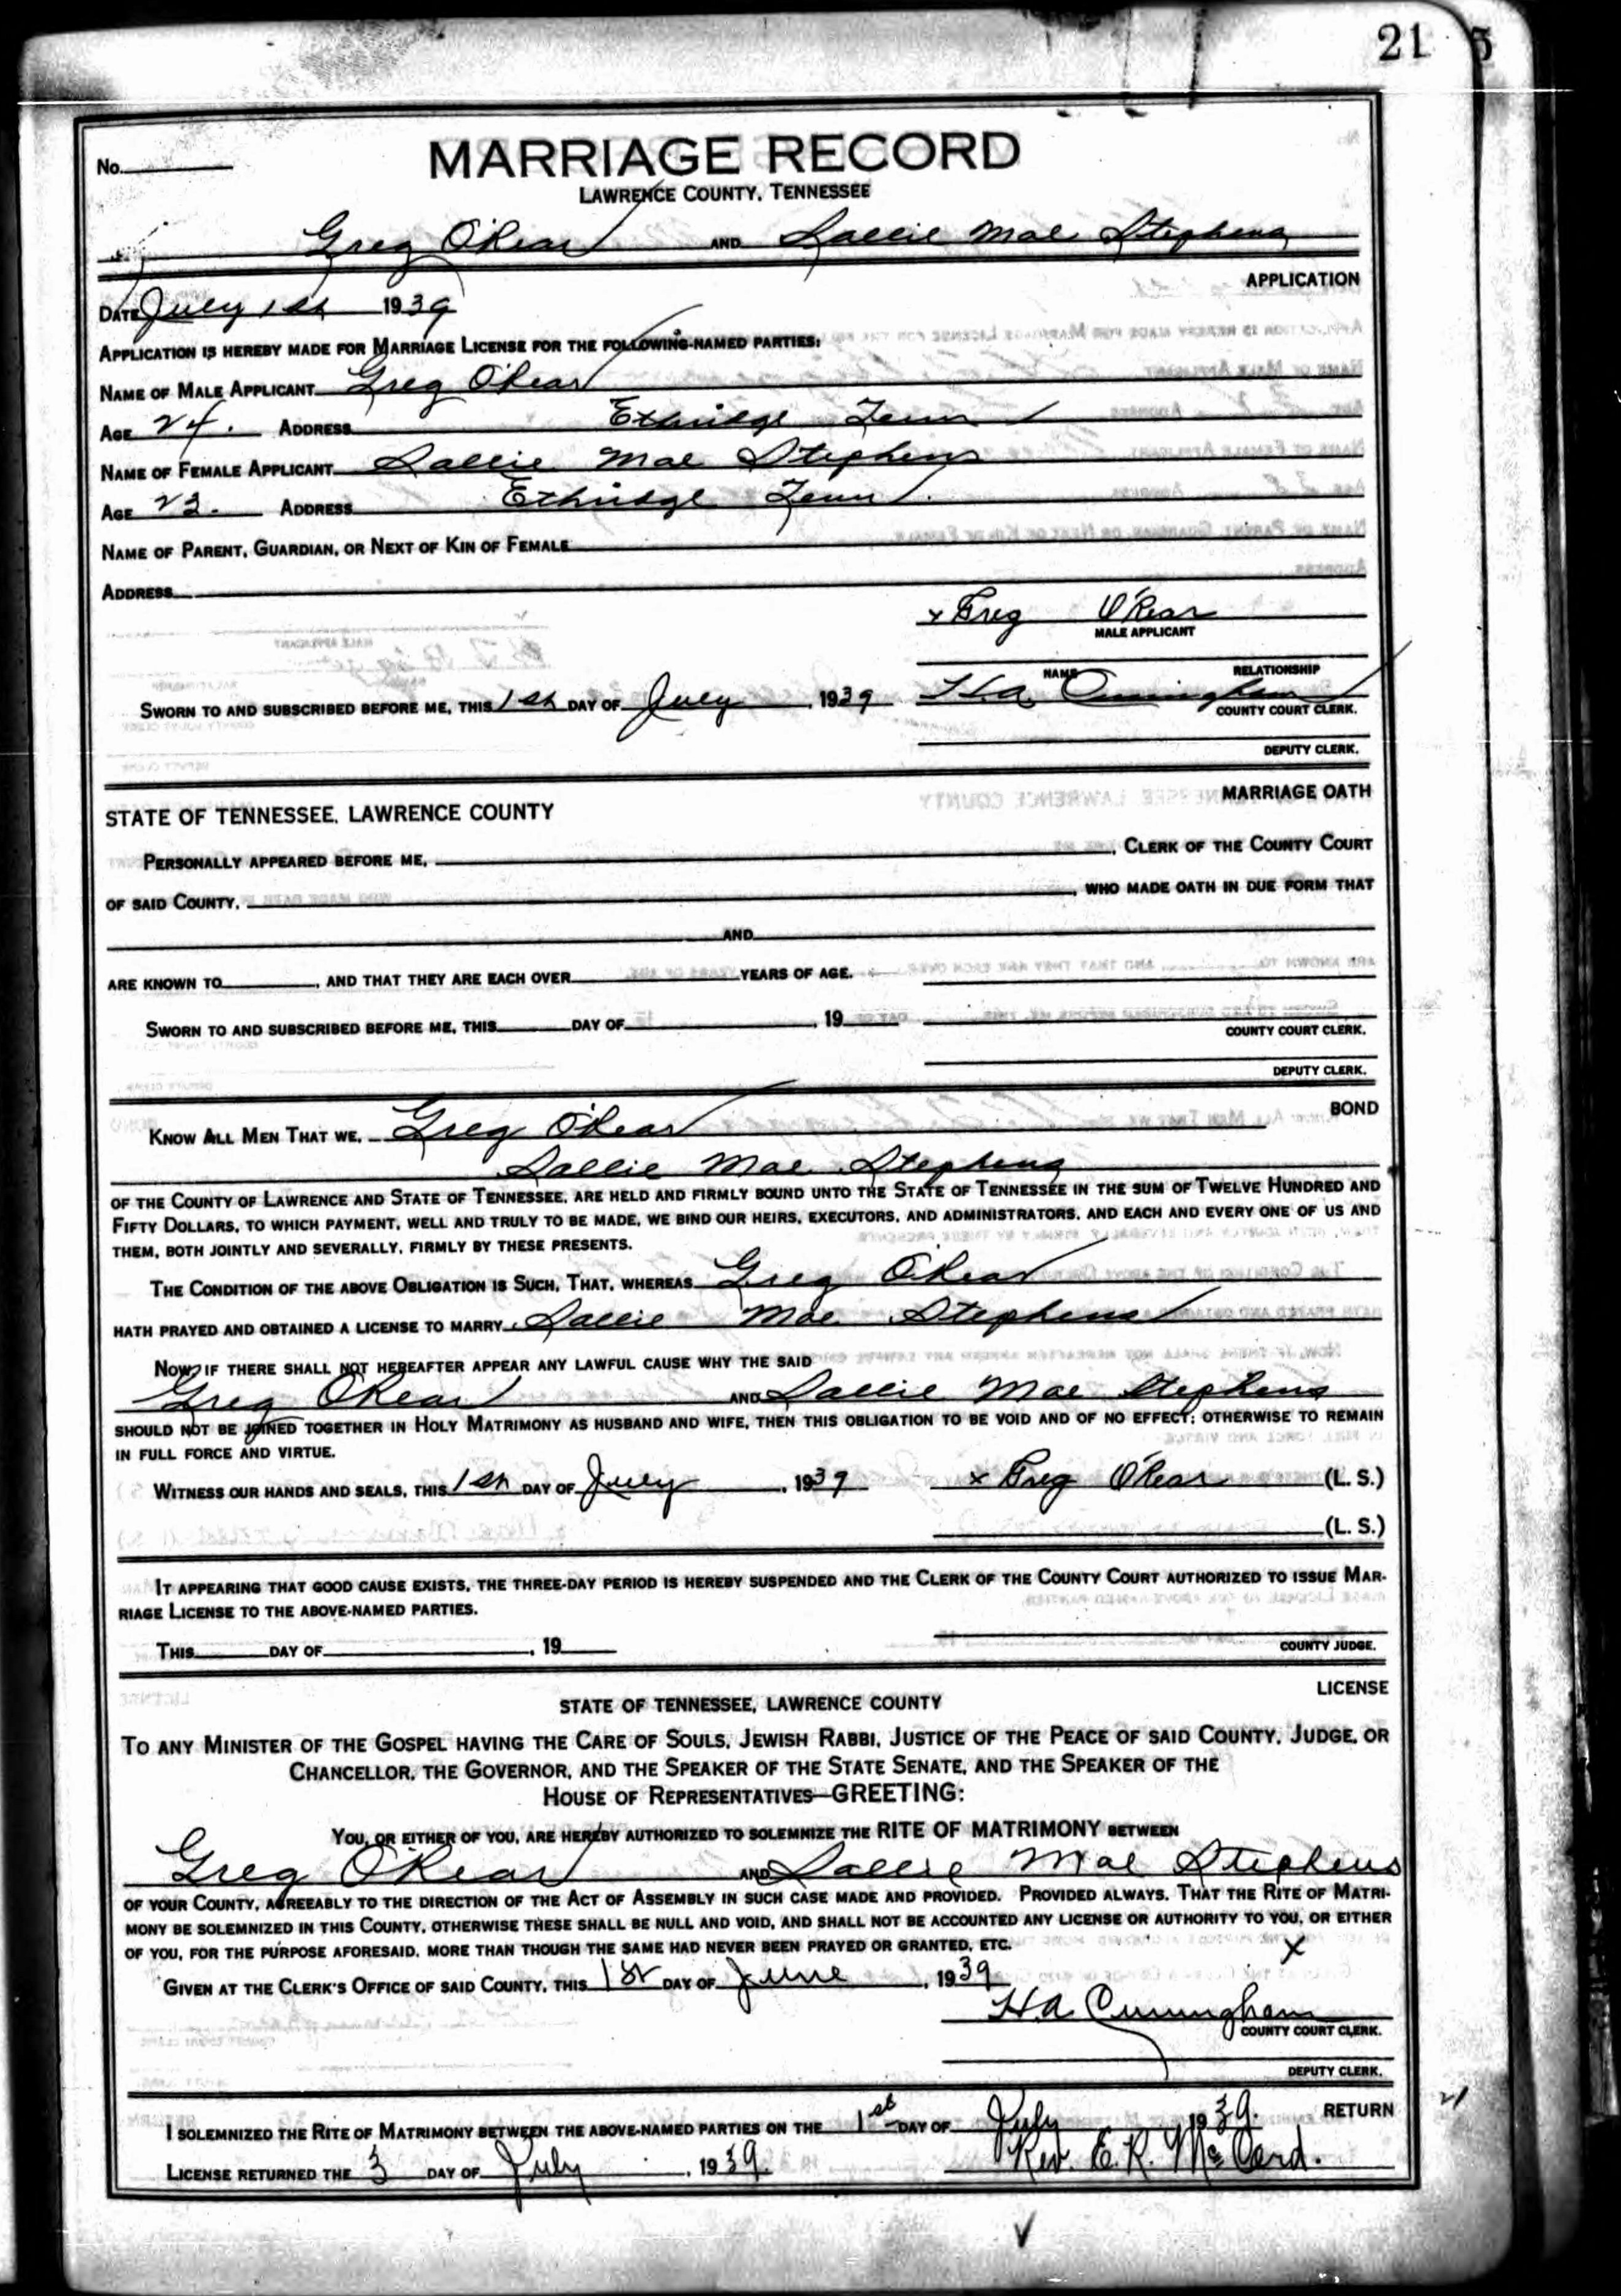 21 5
No.
MARRIAGE RECORD
LAWRENCE COUNTY, TENNESSEE
Greg O'Rear AND Sallie Mae Stephens
APPLICATION
DATE July 1st 1939
APPLICATION IS HEREBY MADE FOR MARRIAGE LICENSE FOR THE FOLLOWING-NAMED PARTIES:
NAME OF MALE APPLICANT Greg O'Rear
AGE 24. ADDRESS Ethridge Tenn
NAME OF FEMALE APPLICANT Sallie Mae Stephens
AGE 23. ADDRESS Ethridge Tenn.
NAME OF PARENT, GUARDIAN, OR NEXT OF KIN OF FEMALE
ADDRESS
x Greg O'Rear
MALE APPLICANT
NAME RELATIONSHIP
SWORN TO AND SUBSCRIBED BEFORE ME, THIS 1st DAY OF July, 1939 H.A. Cuningham
COUNTY COURT CLERK.
DEPUTY CLERK.
MARRIAGE OATH
STATE OF TENNESSEE, LAWRENCE COUNTY
PERSONALLY APPEARED BEFORE ME, , CLERK OF THE COUNTY COURT
OF SAID COUNTY, , WHO MADE OATH IN DUE FORM THAT
AND
ARE KNOWN TO , AND THAT THEY ARE EACH OVER YEARS OF AGE.
SWORN TO AND SUBSCRIBED BEFORE ME, THIS DAY OF , 19
COUNTY COURT CLERK.
DEPUTY CLERK.
BOND
KNOW ALL MEN THAT WE, Greg O'Rear
Sallie Mae Stephens
OF THE COUNTY OF LAWRENCE AND STATE OF TENNESSEE, ARE HELD AND FIRMLY BOUND UNTO THE STATE OF TENNESSEE IN THE SUM OF TWELVE HUNDRED AND
FIFTY DOLLARS, TO WHICH PAYMENT, WELL AND TRULY TO BE MADE, WE BIND OUR HEIRS, EXECUTORS, AND ADMINISTRATORS, AND EACH AND EVERY ONE OF US AND
THEM, BOTH JOINTLY AND SEVERALLY, FIRMLY BY THESE PRESENTS.
THE CONDITION OF THE ABOVE OBLIGATION IS SUCH, THAT, WHEREAS Greg O'Rear
HATH PRAYED AND OBTAINED A LICENSE TO MARRY Sallie Mae Stephens
NOW, IF THERE SHALL NOT HEREAFTER APPEAR ANY LAWFUL CAUSE WHY THE SAID
Greg O'Rear AND Sallie Mae Stephens
SHOULD NOT BE JOINED TOGETHER IN HOLY MATRIMONY AS HUSBAND AND WIFE, THEN THIS OBLIGATION TO BE VOID AND OF NO EFFECT; OTHERWISE TO REMAIN
IN FULL FORCE AND VIRTUE.
WITNESS OUR HANDS AND SEALS, THIS 1st DAY OF July, 1939 x Greg O'Rear (L. S.)
(L. S.)
IT APPEARING THAT GOOD CAUSE EXISTS, THE THREE-DAY PERIOD IS HEREBY SUSPENDED AND THE CLERK OF THE COUNTY COURT AUTHORIZED TO ISSUE MAR-
RIAGE LICENSE TO THE ABOVE-NAMED PARTIES.
THIS DAY OF , 19
COUNTY JUDGE.
LICENSE
STATE OF TENNESSEE, LAWRENCE COUNTY
TO ANY MINISTER OF THE GOSPEL HAVING THE CARE OF SOULS, JEWISH RABBI, JUSTICE OF THE PEACE OF SAID COUNTY, JUDGE, OR
CHANCELLOR, THE GOVERNOR, AND THE SPEAKER OF THE STATE SENATE, AND THE SPEAKER OF THE
HOUSE OF REPRESENTATIVES—GREETING:
YOU, OR EITHER OF YOU, ARE HEREBY AUTHORIZED TO SOLEMNIZE THE RITE OF MATRIMONY BETWEEN
Greg O'Rear AND Sallie Mae Stephens
OF YOUR COUNTY, AGREEABLY TO THE DIRECTION OF THE ACT OF ASSEMBLY IN SUCH CASE MADE AND PROVIDED. PROVIDED ALWAYS, THAT THE RITE OF MATRI-
MONY BE SOLEMNIZED IN THIS COUNTY, OTHERWISE THESE SHALL BE NULL AND VOID, AND SHALL NOT BE ACCOUNTED ANY LICENSE OR AUTHORITY TO YOU, OR EITHER
OF YOU, FOR THE PURPOSE AFORESAID, MORE THAN THOUGH THE SAME HAD NEVER BEEN PRAYED OR GRANTED, ETC.
x
GIVEN AT THE CLERK'S OFFICE OF SAID COUNTY, THIS 1st DAY OF June, 1939
H.A. Cuningham
COUNTY COURT CLERK.
DEPUTY CLERK.
RETURN
I SOLEMNIZED THE RITE OF MATRIMONY BETWEEN THE ABOVE-NAMED PARTIES ON THE 1st DAY OF July 1939.
LICENSE RETURNED THE 3 DAY OF July, 1939. Rev. E. R. McCord.